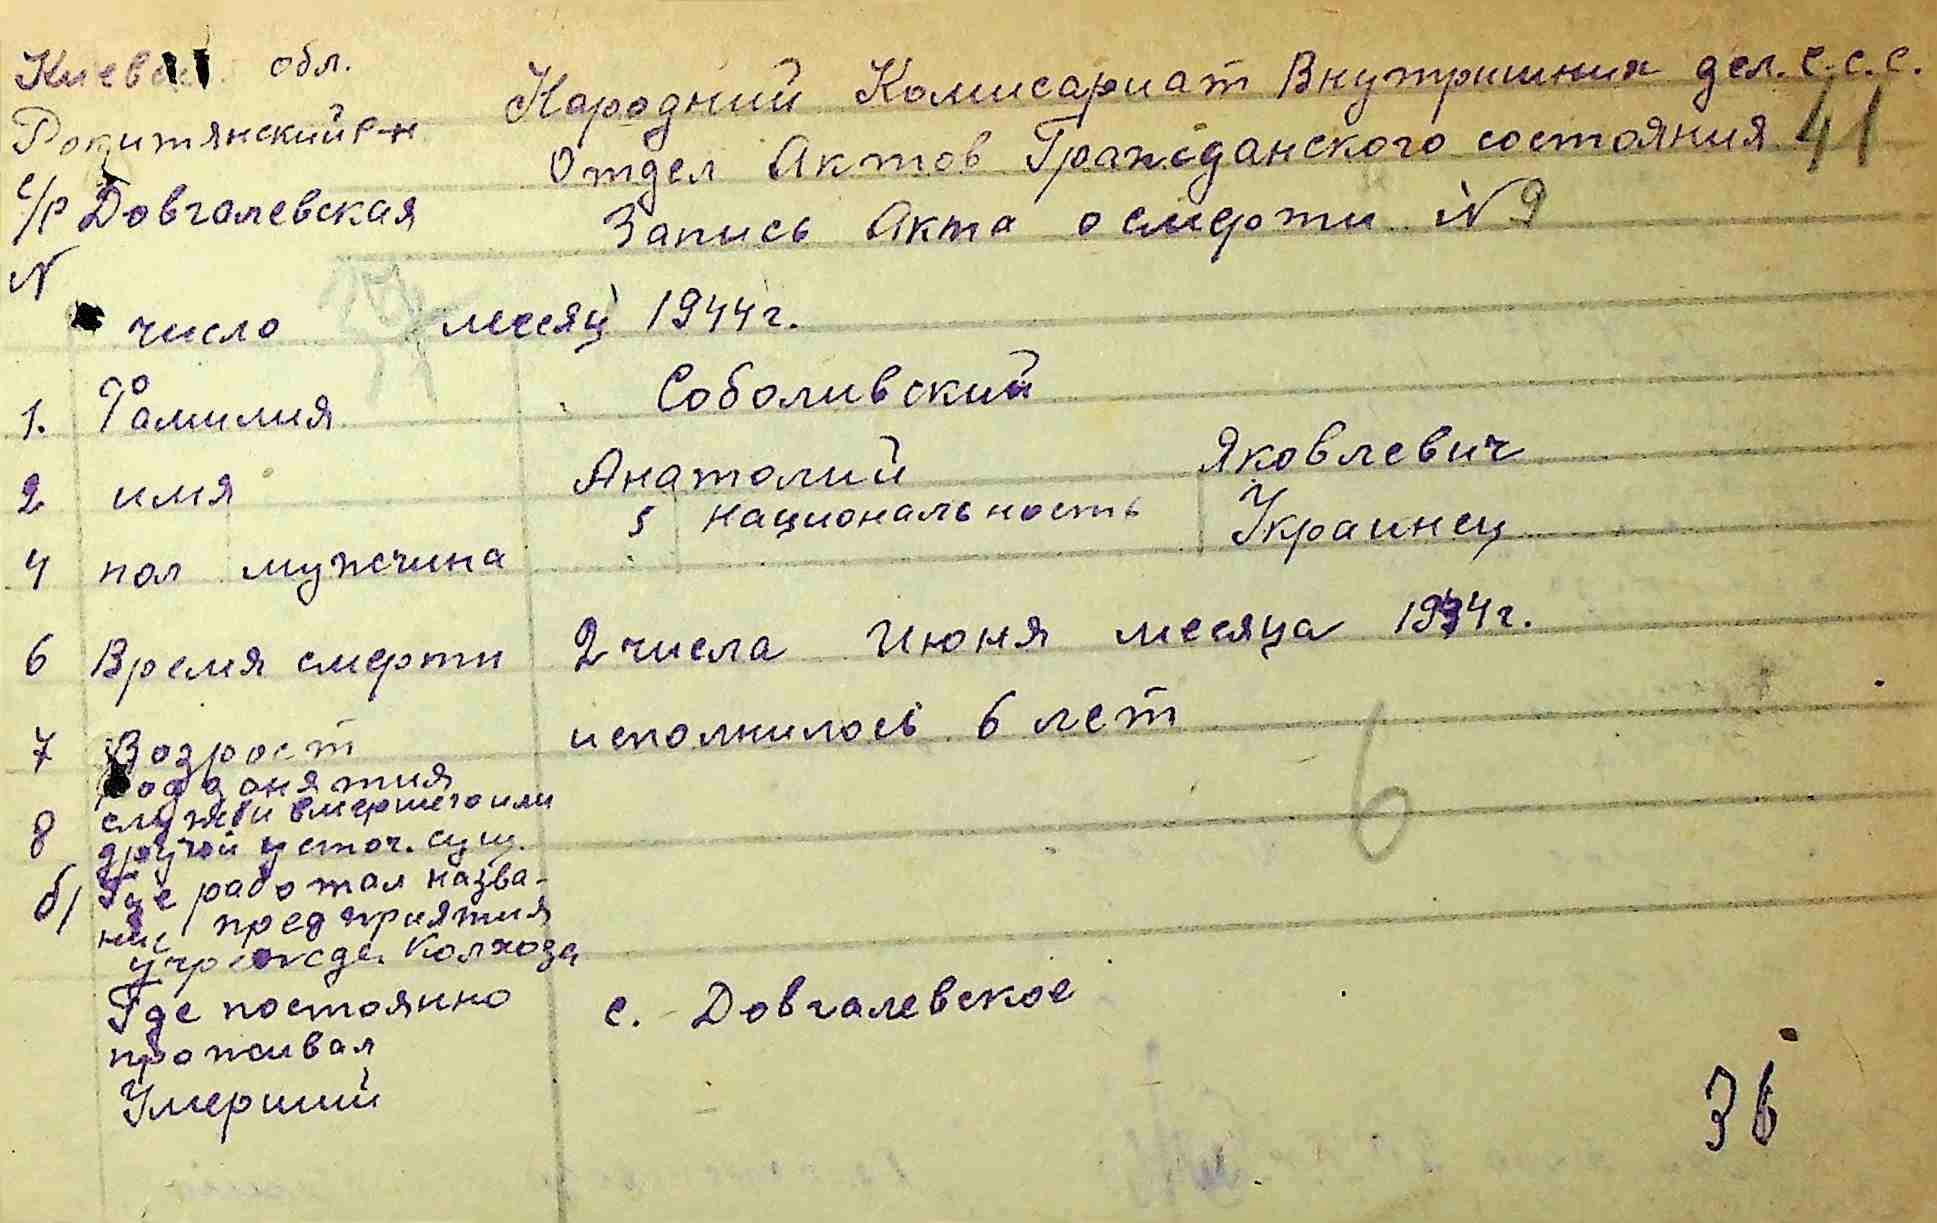 Киевск. обл.
Народний Комисариат Внутришних дел. С.С.С.
Рокитянский р-н
Отдел Актов Гражданского состояния 41
с/р Довгалевская
Запись Акта о смерти N 9
N
число месяц 1944 г.
1. Фамилия Соболивский
2 имя Анатолий Яковлевич
4 пол мужчина 5 национальность Украинец
6 Время смерти 2 числа Июня месяца 1944 г.
7 Возрост исполнилось 6 лет
Род зонятия
8 служби вмершего или
другой источ. сущ.
б) Где работал назва-
ние предприятия
учрежде. Колхоза
6
Где постоянно с. Довгалевское
проживал
Умерший
36